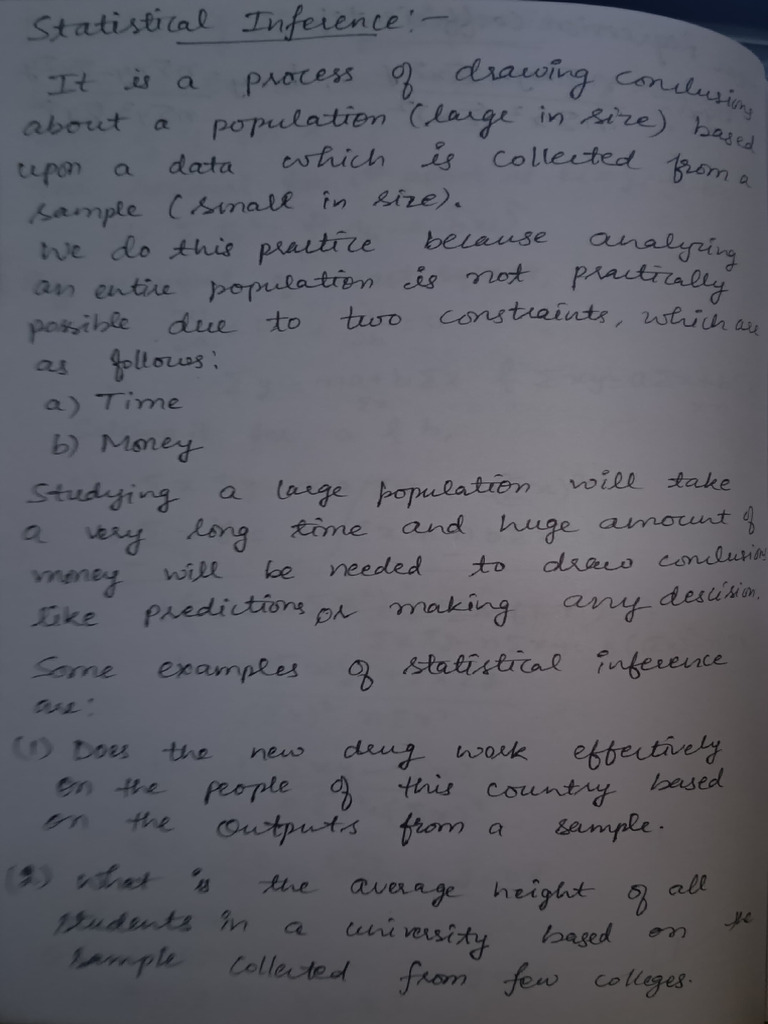 Statistical Inference:-
It is a process of drawing conclusions
about a population (large in size) based
upon a data which is collected from a
sample (small in size).
We do this practice because analyzing
an entire population is not practically
possible due to two constraints, which are
as follows:
a) Time
b) Money
Studying a large population will take
a very long time and huge amount of
money will be needed to draw conclusions
like predictions or making any descision.
Some examples of statistical inference
are:
(1) Does the new drug work effectively
on the people of this country based
on the outputs from a sample.
(2) What is the average height of all
students in a university based on the
sample collected from few colleges.